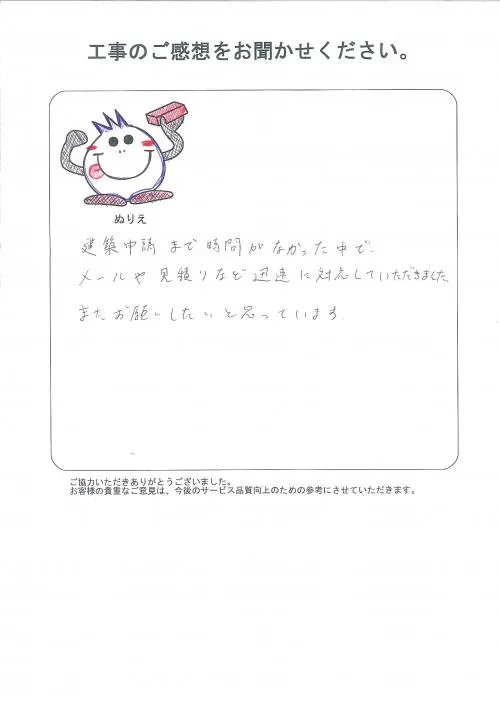 工事のご感想をお聞かせください。
ぬりえ
建築申請まで時間がなかった中で、
メールや見積りなど迅速に対応していただきました。
またお願いしたいと思っています。
ご協力いただきありがとうございました。
お客様の貴重なご意見は、今後のサービス品質向上のための参考にさせていただきます。